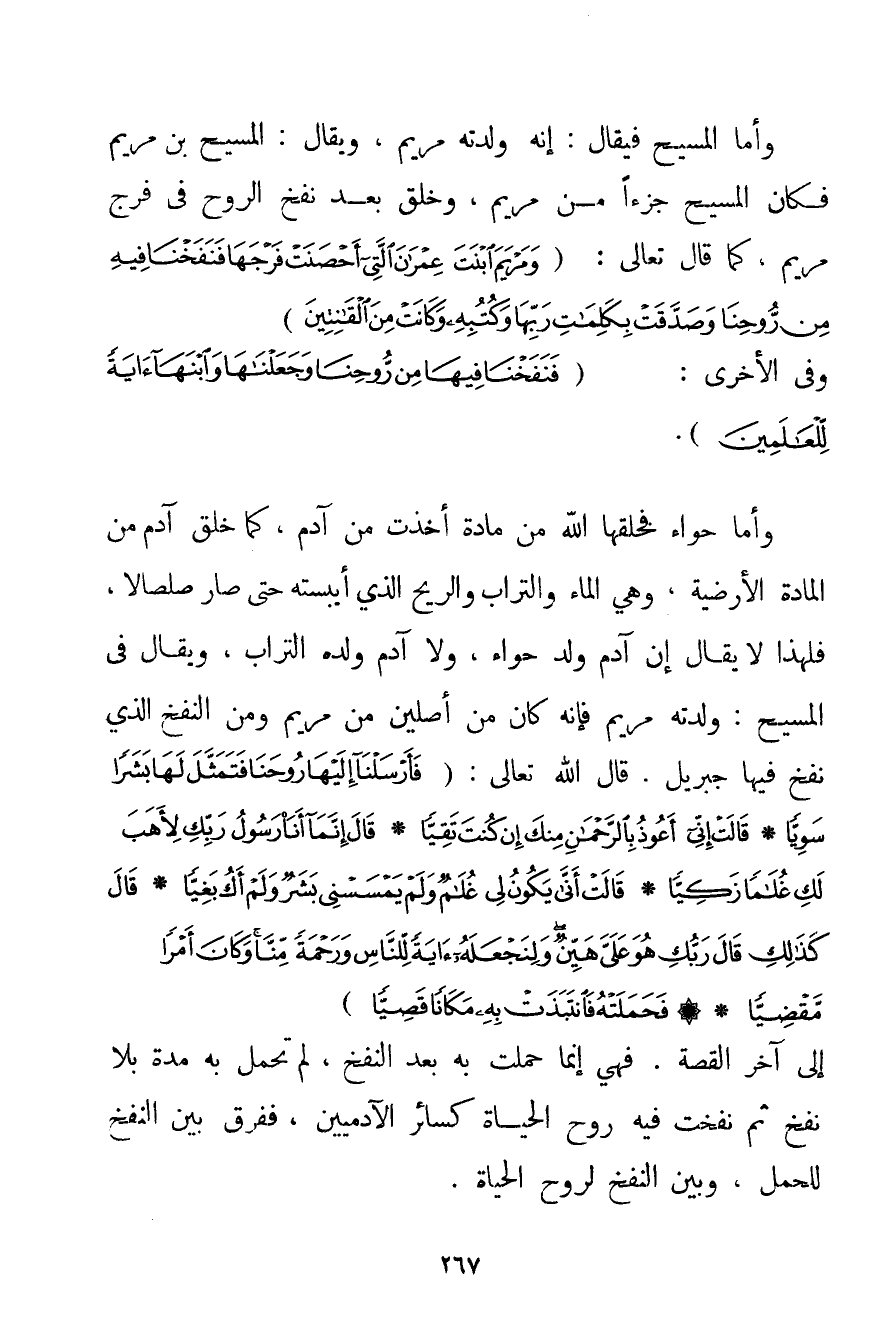 وأما المسيح فيقال : إنه ولدته مريم ، ويقال : المسيح بن مريم
فـكان المسيح جزءاً مـن مريم ، وخلق بعـد نفخ الروح فى فرج
مريم ، كما قال تعالى : ( وَمَرْيَمَ ٱبْنَتَ عِمْرَٰنَ ٱلَّتِىٓ أَحْصَنَتْ فَرْجَهَا فَنَفَخْنَا فِيهِ
مِن رُّوحِنَا وَصَدَّقَتْ بِكَلِمَٰتِ رَبِّهَا وَكُتُبِهِۦ وَكَانَتْ مِنَ ٱلْقَٰنِتِينَ )
وفى الأخرى : ( فَنَفَخْنَا فِيهَا مِن رُّوحِنَا وَجَعَلْنَٰهَا وَٱبْنَهَآ ءَايَةً
لِّلْعَٰلَمِينَ ) .
وأما حواء فخلقها الله من مادة أخذت من آدم ، كما خلق آدم من
المادة الأرضية ، وهي الماء والتراب والريح الذي أيبسته حتى صار صلصالا ،
فلهذا لا يقـال إن آدم ولد حواء ، ولا آدم ولده التراب ، ويقـال فى
المسيح : ولدته مريم فإنه كان من أصلين من مريم ومن النفخ الذي
نفخ فيها جبريل . قال الله تعالى : ( فَأَرْسَلْنَآ إِلَيْهَا رُوحَنَا فَتَمَثَّلَ لَهَا بَشَرًا
سَوِيًّا * قَالَتْ إِنِّىٓ أَعُوذُ بِٱلرَّحْمَٰنِ مِنكَ إِن كُنتَ تَقِيًّا * قَالَ إِنَّمَآ أَنَا۠ رَسُولُ رَبِّكِ لِأَهَبَ
لَكِ غُلَٰمًا زَكِيًّا * قَالَتْ أَنَّىٰ يَكُونُ لِى غُلَٰمٌ وَلَمْ يَمْسَسْنِى بَشَرٌ وَلَمْ أَكُ بَغِيًّا * قَالَ
كَذَٰلِكِ قَالَ رَبُّكِ هُوَ عَلَىَّ هَيِّنٌ ۖ وَلِنَجْعَلَهُۥٓ ءَايَةً لِّلنَّاسِ وَرَحْمَةً مِّنَّا ۚ وَكَانَ أَمْرًا
مَّقْضِيًّا * ۞ فَحَمَلَتْهُ فَٱنتَبَذَتْ بِهِۦ مَكَانًا قَصِيًّا )
إلى آخر القصة . فهي إنما حملت به بعد النفخ ، لم تحمل به مدة بلا
نفخ ثم نفخت فيه روح الحيـاة كسائر الآدميين ، ففرق بين النفخ
للحمل ، وبين النفخ لروح الحياة .
٢٦٧